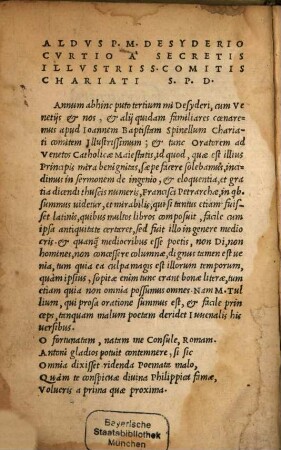 ALDVS P. M. DESYDERIO
CVRTIO A' SECRETIS
ILLVSTRISS. COMITIS
CHARIATI S. P. D.
Annum abhinc puto tertium mi Desyderi, cum Ve
netijs & nos, & alij quidam familiares cœnare=
mus apud Ioannem Baptistam Spinellum Charia=
ti comitem Illustrissimum; & tunc Oratorem ad
Venetos Catholicæ Maiestatis, id quod, quæ est illius
Principis mira benignitas, sæpe facere solebamus, inci=
dimus in sermonem de ingenio, & eloquentia, et gra
tia dicendi thuscis numeris, Francisci Petrarchæ, in qb.
summus uidetur, et mirabilis, qui si tantus etiam fuis=
set latinis, quibus multos libros composuit, facile cum
ipsa antiquitate certaret, sed fuit illo in genere medio
cris· & quanq; mediocribus esse poetis, non Di, non
homines, non concessere columnæ, dignus tamen est ue
nia, tum quia ea culpa magis est illorum temporum,
quàm ipsius, sopitæ enim tunc erant bonæ literæ, tum
etiam quia non omnia possumus omnes· Nam M. Tul
lium, qui prosa oratione summus est, & facile prin=
ceps, tanquam malum poetam deridet Iuuenalis his
uersibus.
O fortunatam, natam me Consule, Romam.
Antoni gladios potuit contemnere, si sic
Omnia dixisset ridenda Poemata malo,
Quàm te conspicuæ diuina Philippica famæ,
Volueris a prima quæ proxima.
Bayerische
Staatsbibliothek
München